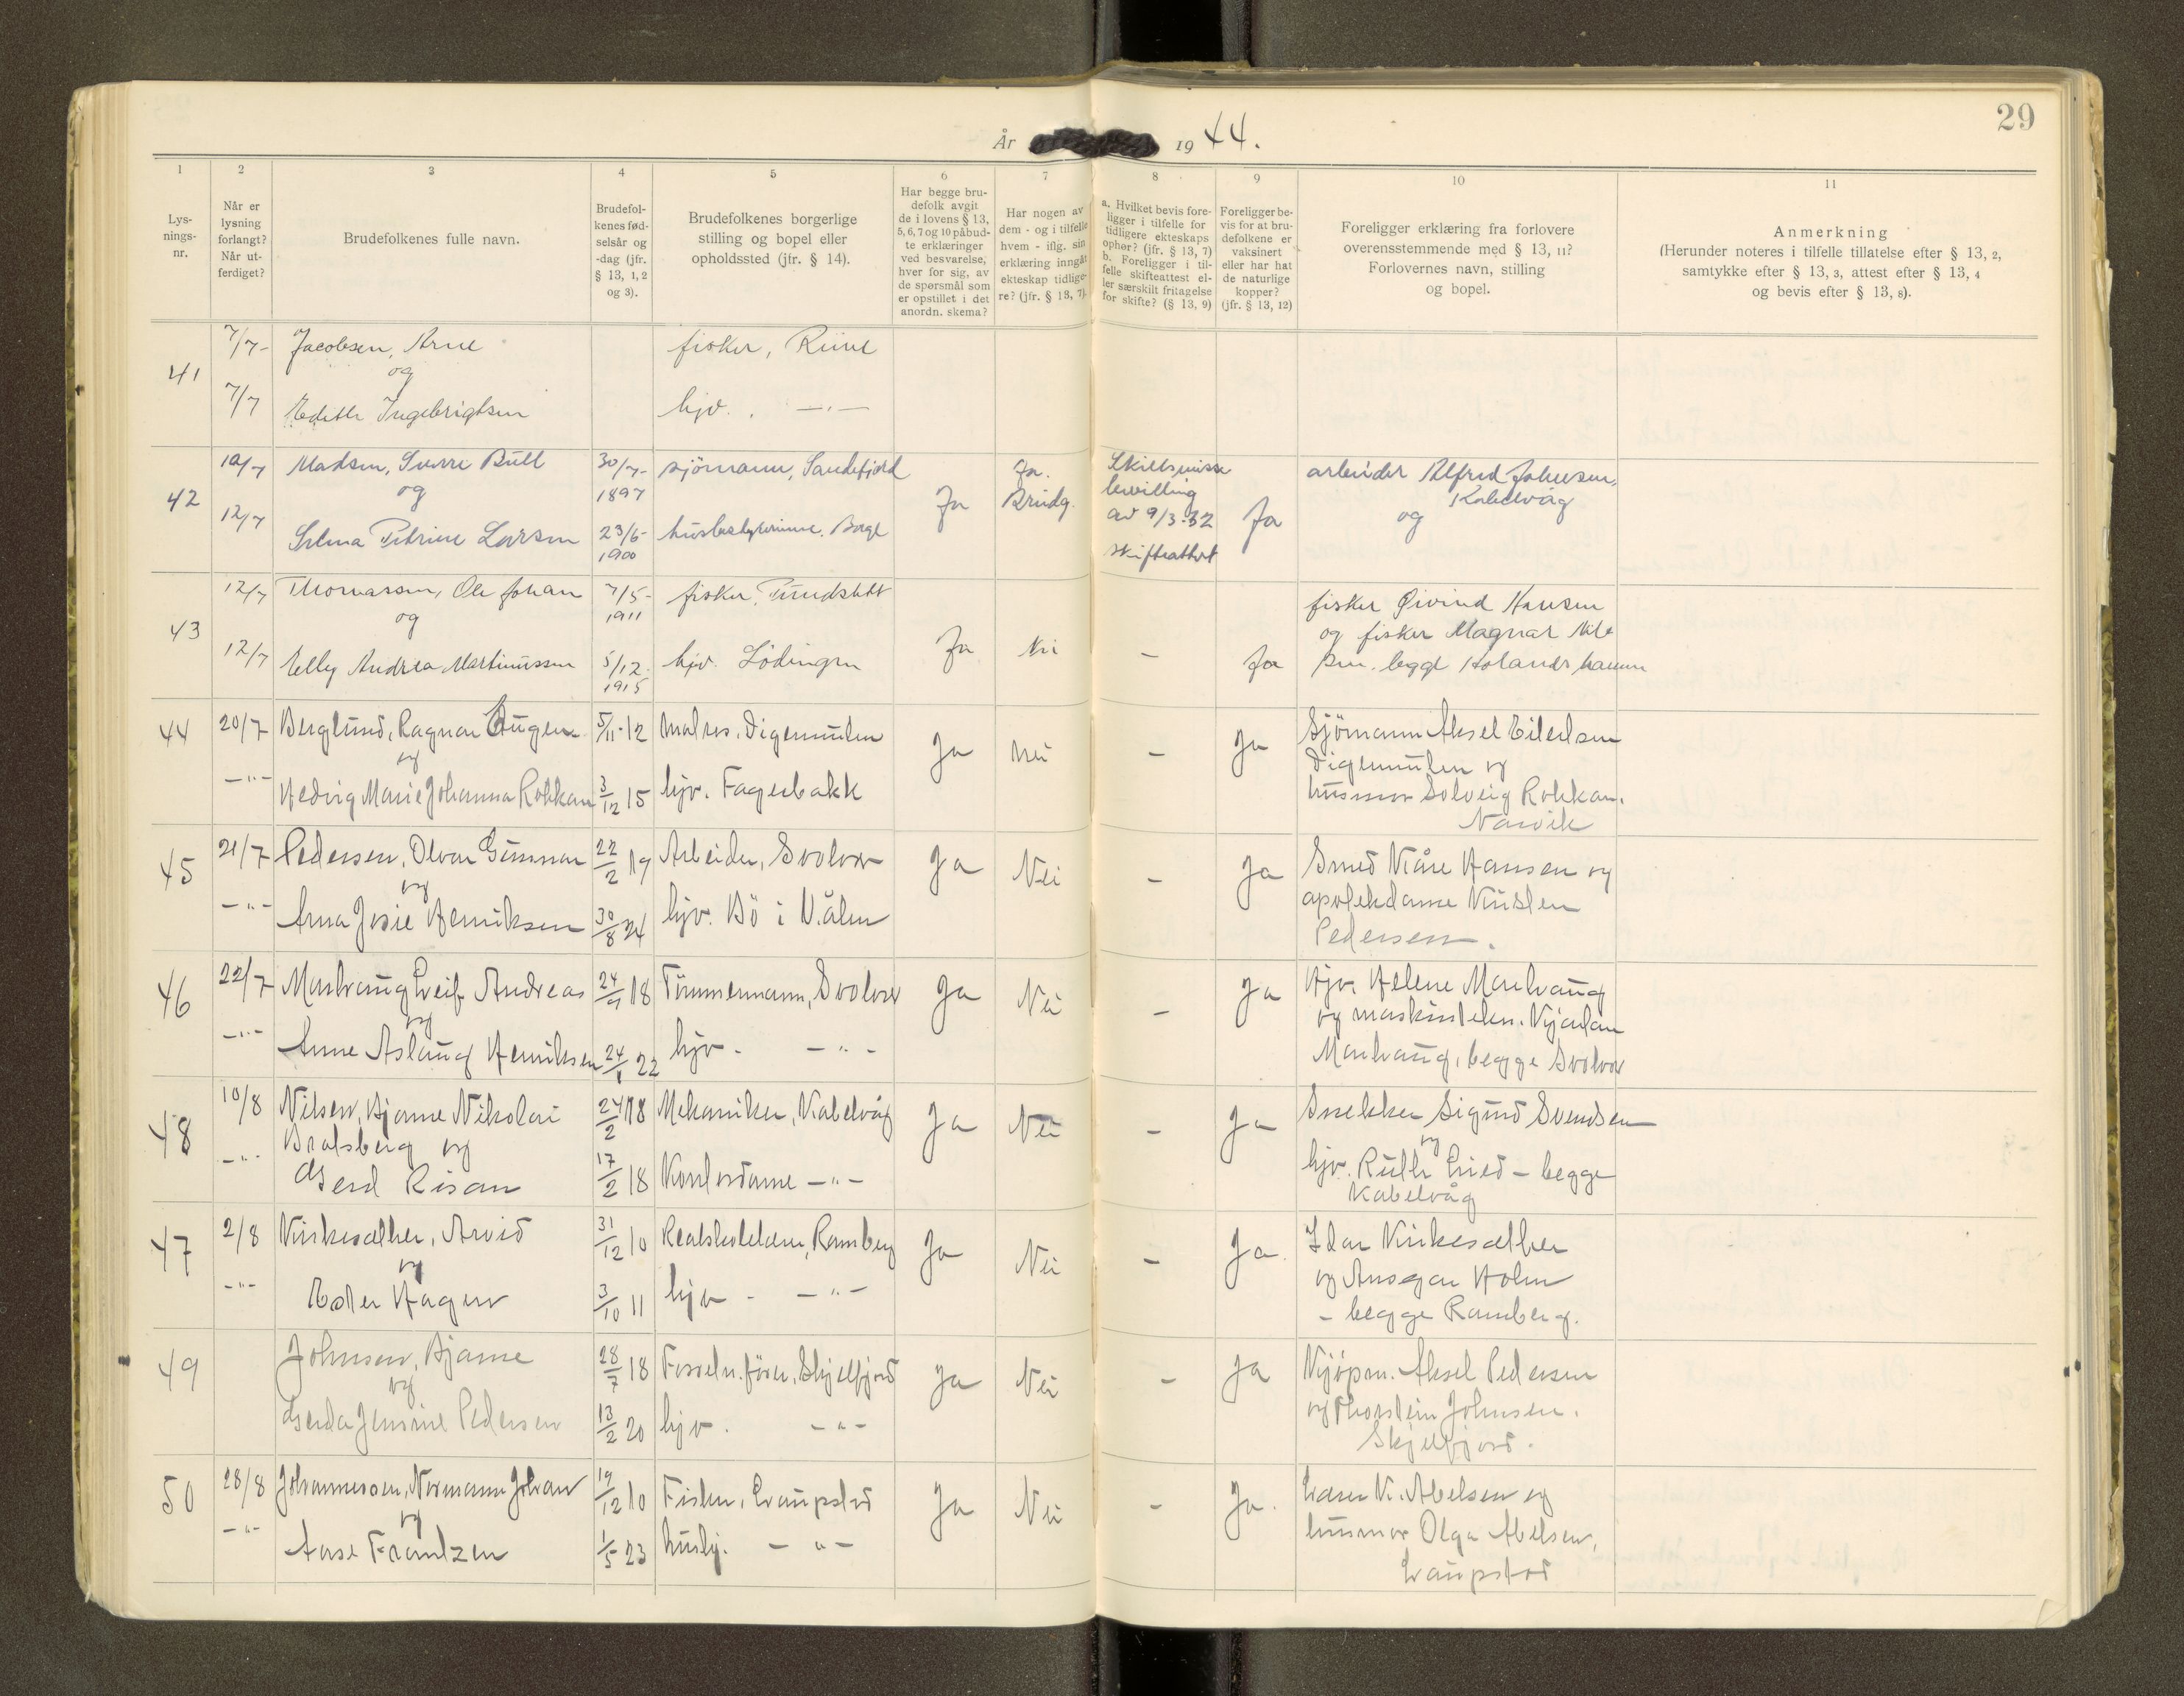 29
År 1944.
1 2 3 4 5 6 7 8 9 10 11
Lys-
nings-
nr.
Når er
lysning
forlangt?
Når ut-
ferdiget?
Brudefolkenes fulle navn.
Brudefol-
kenes fød-
selsår og
-dag (jfr.
§ 13, 1, 2
og 3).
Brudefolkenes borgerlige
stilling og bopel eller
opholdssted (jfr. § 14).
Har begge bru-
defolk avgit
de i lovens § 13,
5, 6, 7 og 10 påbud-
te erklæringer
ved besvarelse,
hver for sig, av
de spørsmål som
er opstillet i det
anordn. skema?
Har nogen av
dem - og i tilfelle
hvem - iflg. sin
erklæring inngåt
ekteskap tidlige-
re? (jfr. § 13, 7).
a. Hvilket bevis fore-
ligger i tilfelle for
tidligere ekteskaps
ophør? (jfr. § 13, 7)
b. Foreligger i til-
felle skifteattest el-
ler særskilt fritagelse
for skifte? (§ 13, 9)
Foreligger be-
vis for at bru-
defolkene er
vaksinert
eller har hat
de naturlige
kopper?
(jfr. § 13, 12)
Foreligger erklæring fra forlovere
overensstemmende med § 13, 11?
Forlovernes navn, stilling
og bopel.
Anmerkning
(Herunder noteres i tilfelle tillatelse efter § 13, 2,
samtykke efter § 13, 3, attest efter § 13, 4
og bevis efter § 13, 8).
41 7/7- Jacobsen, Arne fisker, Reine
og
7/7 Edith Ingebrigtsen hjv. . —"—
42 10/7 Madsen, Sverre Bull 30/7- 1897 sjömann, Sandefjord
og
12/7 Selma Petrine Larsen 23/6- 1900 husbestyrerinne. Borge
Ja Ja. Brudg.
Skilsmisse
bevilling
av 9/3-32
skifteattest
Ja
arbeider Alfred Johnsen,
Kabelvåg
og
43 12/7 Thomassen, Ole Johan 7/5- 1911 fisker,
og
12/7 Elly Andrea Martinussen 5/12. 1915 hjv. Lödingen
Ja Nei — Ja
fisker Øivind Hansen
og fisker Magnar Nil
sen. begge Holandshamn
44 20/7 Berglund, Ragnar Eugen 5/11-12 Malres. Digermulen
og
—"— Hedvig Marie Johanna Rokkan 3/12 15 hjv. Fagerbakk
Ja Nei – Ja
Sjömann Aksel Eilertsen
Digermulen og
husmor Solveig Rokkan.
Narvik
45 21/7 Pedersen, Olvar Gunnar 22/2 19 Arbeider, Svolvær
og
—"— Anna Josie Henriksen 30/8 24 hjv. Bö i V.ålen
Ja Nei – Ja
Smed Kåre Hansen og
apotekdame Kirsten
Pedersen.
46 22/7 Leif Andreas 18 Tömmermann, Svolvær
og
—"— Anne Aslaug Henriksen 22 hjv. —"—
Ja Nei – Ja
Hjv. Helene
og
begge Svolvær
48 10/8 Nilsen, Bjarne Nikolai 24/2 18 Mekaniker, Kabelvåg
Bratsberg og
—"— Gerd Risan 17/2 18 Kontordame —"—
Ja Nei – Ja
Snekker Sigurd Svendsen
og
hjv. Ruth Lied – begge
Kabelvåg
47 2/8 Kirkesæther, Arvid 31/12 10 Realskolelærer, Ramberg
og
—"— Ester Hagen 3/10 11 hjv. —"—
Ja Nei – Ja.
Idar Kirkesæther
og Ansgar Holm
– begge Ramberg.
49 Johnsen, Bjarne 28/7 18 Skjelfjord
og
Gerda Jensine Pedersen 13/2 20 hjv. —"—
Ja Nei – Ja
Kjöpm. Aksel Pedersen
og Thorstein Johnsen.
Skjelfjord.
50 28/8 Johannessen, Normann Johan 19/12 10 Fisker, Laupstad
og
—"— Aase Frantzen 1/5 23 huslg. —"—
Ja Nei – Ja.
K. Abelsen og
husmor Olga Abelsen,
Laupstad